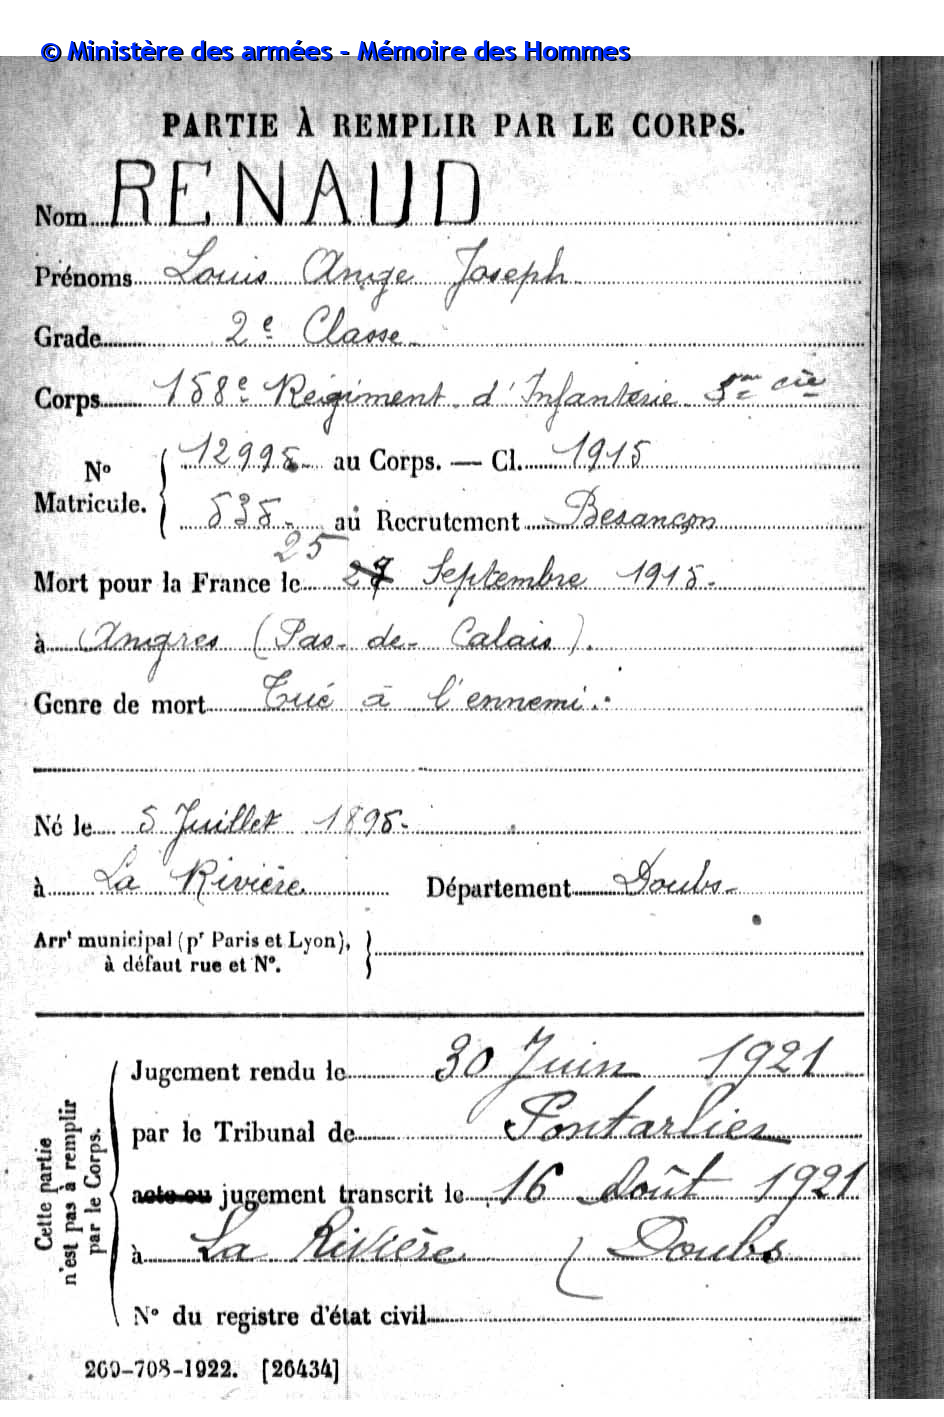 © Ministère des armées - Mémoire des Hommes
PARTIE À REMPLIR PAR LE CORPS.
Nom RENAUD
Prénoms Louis Ange Joseph
Grade 2e Classe
Corps 158e Régiment d'Infanterie 5me cie
N° Matricule. 12995 au Corps. — Cl. 1915
535 au Recrutement Besançon
25
Mort pour la France le 27 Septembre 1915
à Angres (Pas-de-Calais).
Genre de mort Tué à l'ennemi.
Né le 5 Juillet 1895
à La Rivière Département Doubs
Arrt municipal (pr Paris et Lyon),
à défaut rue et N°.
Cette partie n'est pas à remplir par le Corps.
Jugement rendu le 30 Juin 1921
par le Tribunal de Pontarlier
acte ou jugement transcrit le 16 Août 1921
à La Rivière (Doubs
N° du registre d'état civil
269-708-1922. [26434]